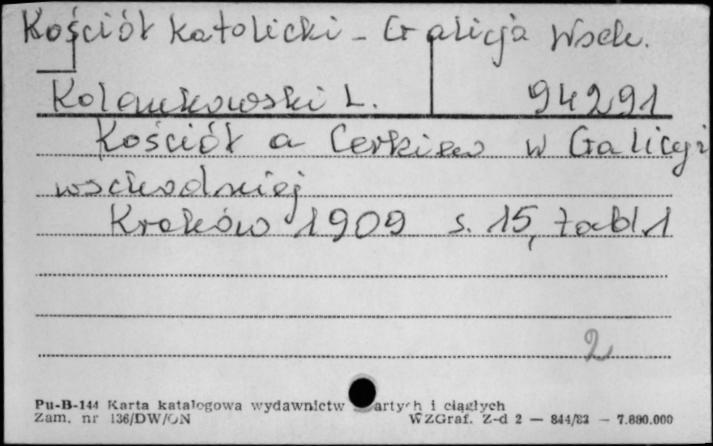 Kościół katolicki - Galicja Wsch.
Kolankowski L. 94291
Kościół a Cerkiew w Galicyi
wschodniej
Kraków 1909 s. 15, tabl. 1
2
Pu-B-144 Karta katalogowa wydawnictw zwartych i ciągłych
Zam. nr 136/DW/ON WZGraf. Z-d 2 — 844/82 — 7.880.000